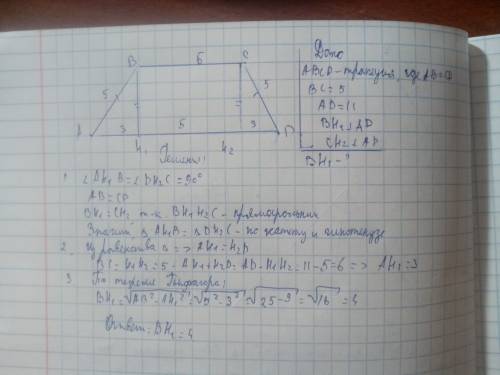 B 5 C
Дано
ABCD - трапеция, где AB=CD
BC=5
AD=11
BH₁⊥AD
CH₂⊥AD
BH₁-?
5 5
A 3 5 3 D
H₁ H₂
Решение:
1 ∠AH₁B=∠DH₂C=90°
AB=CD
BH₁=CH₂ т.к. BH₁H₂C - прямоугольник
Значит △AH₁B=△DH₂C - по катету и гипотенузе
2 Из равенства △ => AH₁=H₂D
BC=H₁H₂=5 - AH₁+H₂D=AD-H₁H₂=11-5=6 => AH₁=3
3 По теореме Пифагора:
BH₁=√AB²-AH₁²=√5²-3²=√25-9=√16=4
Ответ: BH₁=4